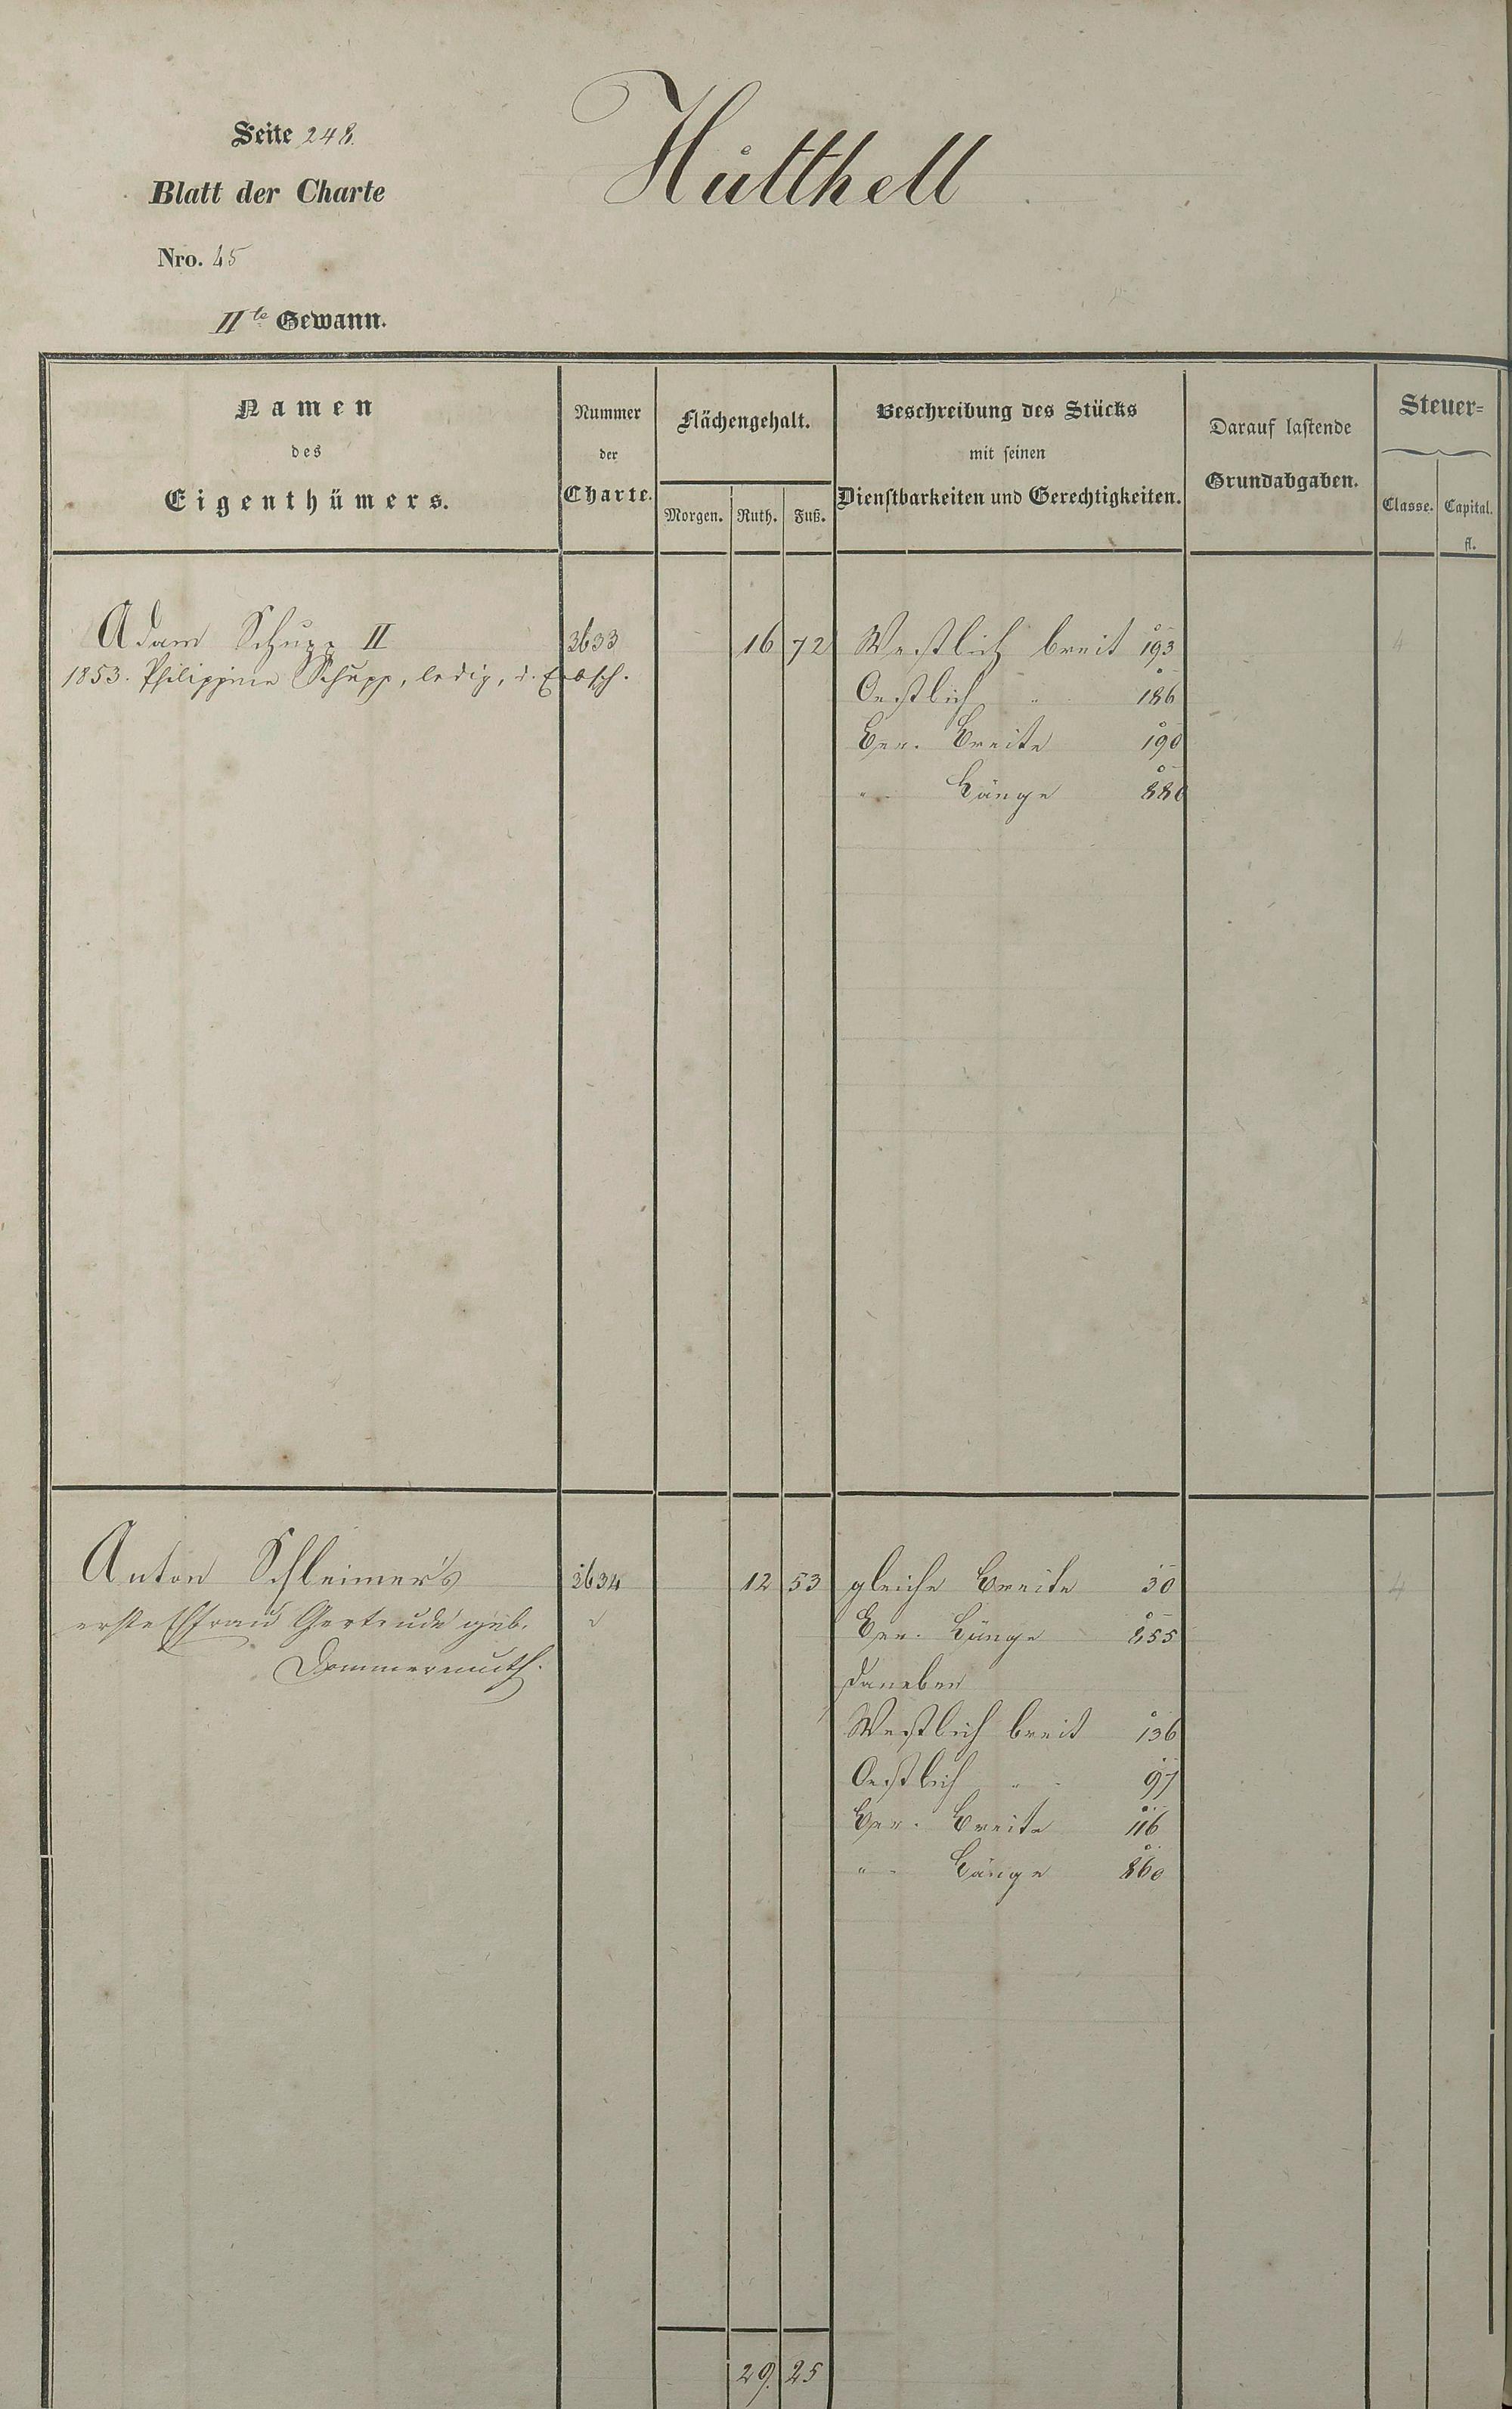 Seite 248.
Hütthell
Blatt der Charte
Nro. 45
IIte Gewann.
Namen
des
Eigenthümers.
Nummer
der
Charte.
Flächengehalt.
Morgen. Ruth. Fuß.
Beschreibung des Stücks
mit seinen
Dienstbarkeiten und Gerechtigkeiten.
Darauf lastende
Grundabgaben.
Steuer-
Classe. Capital.
fl.
Adam Schupp II 3633 16 72 Westlich breit 193 4
1853. Philippine Schupp, ledig, d. Erbsch.
Oestlich " 186
Ger. Breite 190
" Länge 880
Anton Schleimer's 3634 12 53 gleiche Breite 30 4
erste Efrau Gertrude geb.
Ger. Länge 855
Dommermuth.
daneben
Westlich breit 136
Oestlich " 97
Ger. Breite 116
" Länge 860
29. 25